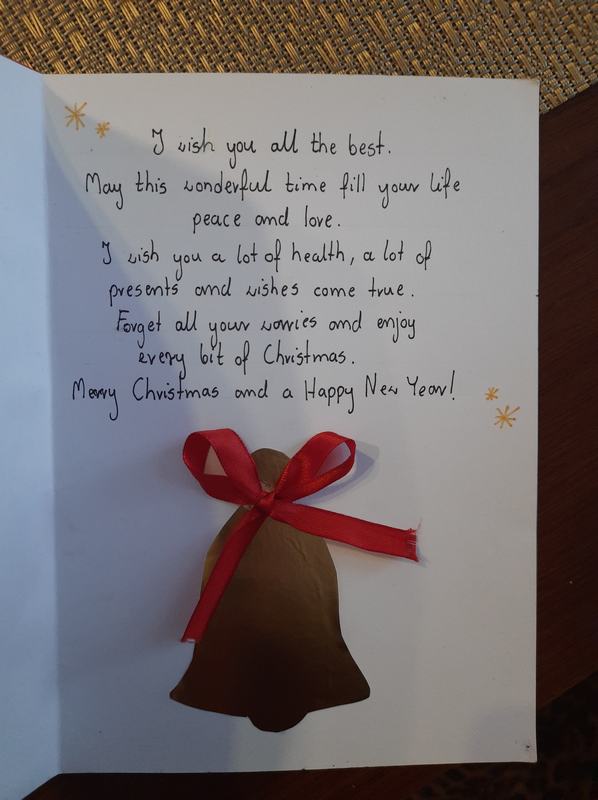 I wish you all the best.
May this wonderful time fill your life
peace and love.
I wish you a lot of health, a lot of
presents and wishes come true.
Forget all your worries and enjoy
every bit of Christmas.
Merry Christmas and a Happy New Year!